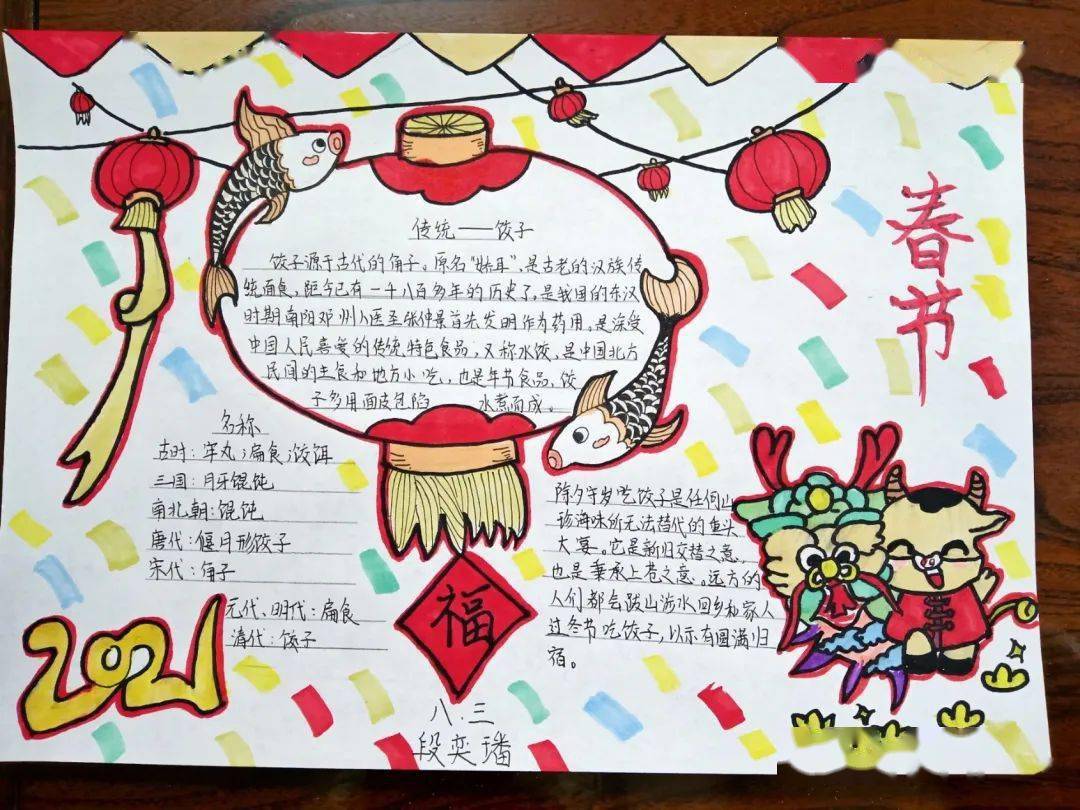 春节
传统——饺子
饺子源于古代的角子。原名“娇耳”,是古老的汉族传
统面食,距今已有一千八百多年的历史了,是我国的东汉
时期南阳邓州人医圣张仲景首先发明作为药用。是深受
中国人民喜爱的传统特色食品,又称水饺,是中国北方
民间的主食和地方小吃,也是年节食品,饺
子多用面皮包馅 水煮而成。
名称
古时:牢丸;扁食;饺饵
三国:月牙馄饨
南北朝:馄饨
唐代:偃月形饺子
宋代:角子
元代、明代:扁食
清代:饺子
2021
福
除夕守岁吃饺子是任何山
珍海味所无法替代的重头
大宴。它是新旧交替之意,
也是秉承上苍之意。远方的
人们都会跋山涉水回乡和家人
过冬节吃饺子,以示有圆满归
宿。
八.三
段奕璠